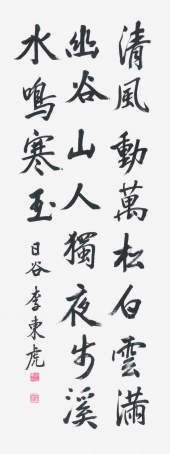 清風動萬松白雲滿
幽谷山人獨夜步溪
水鳴寒玉
日谷 李東虎